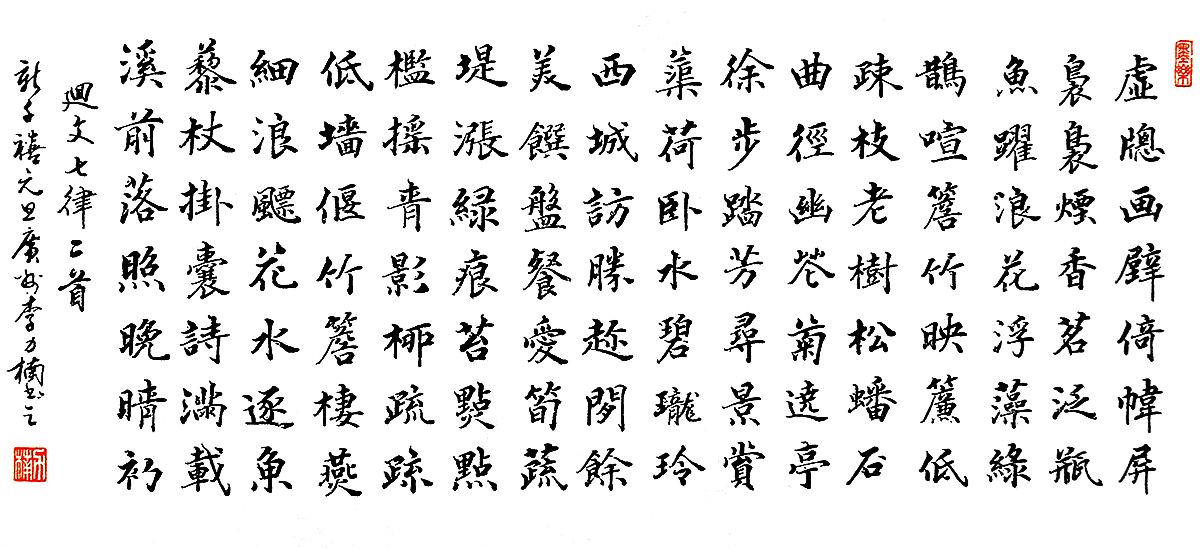 虛牕画壁倚幃屏
裊裊煙香茗泛瓶
魚躍浪花浮藻綠
鵲喧簷竹映簾低
疎枝老樹松蟠石
曲徑幽菊遶亭
徐步踏芳尋景賞
蕖荷卧水碧瓏玲
西城訪勝趁閑餘
美饌盤餐愛筍蔬
堤漲綠痕苔點點
檻搖青影柳疏疎
低墻偃竹簷棲燕
細浪飄花水逐魚
藜杖掛囊詩滿載
溪前落照晚晴初
迴文七律二首
新千禧元旦廣州李力楠书之